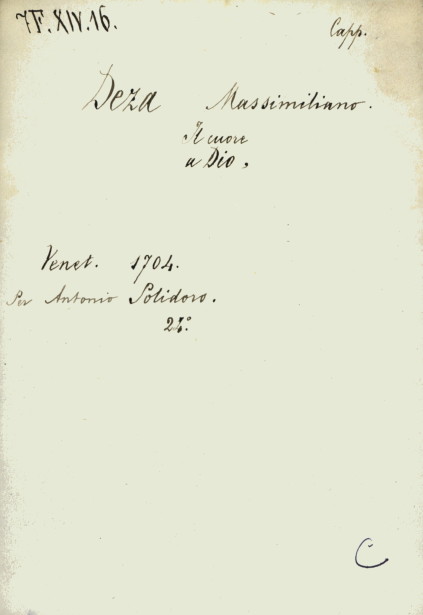 7F.XIV.16.
Capp.
Deza Massimiliano.
Il cuore
a Dio,
Venet. 1704.
Per Antonio Polidoro.
24°
C